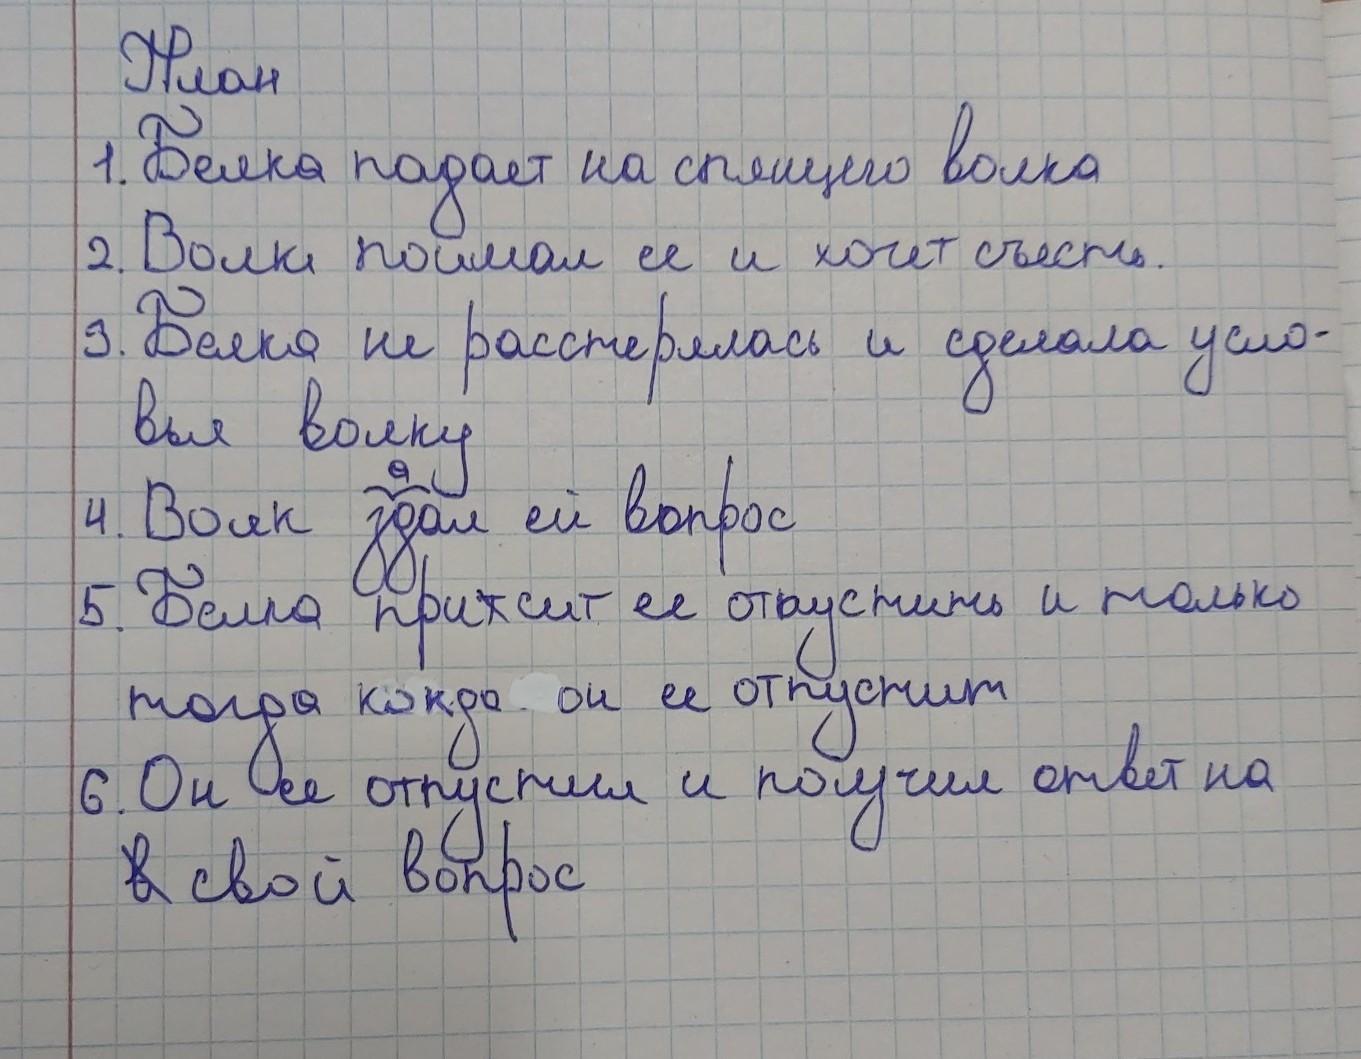 План
1. Белка падает на спящего волка
2. Волк поймал ее и хочет съесть.
3. Белка не расстерялась и сделала усло-
вья волку
4. Волк здал ей вопрос
5. Белка прихсит ее отпустить и только
тогда кокда он ее отпустит
6. Он ее отпустил и получил ответ на
свой вопрос